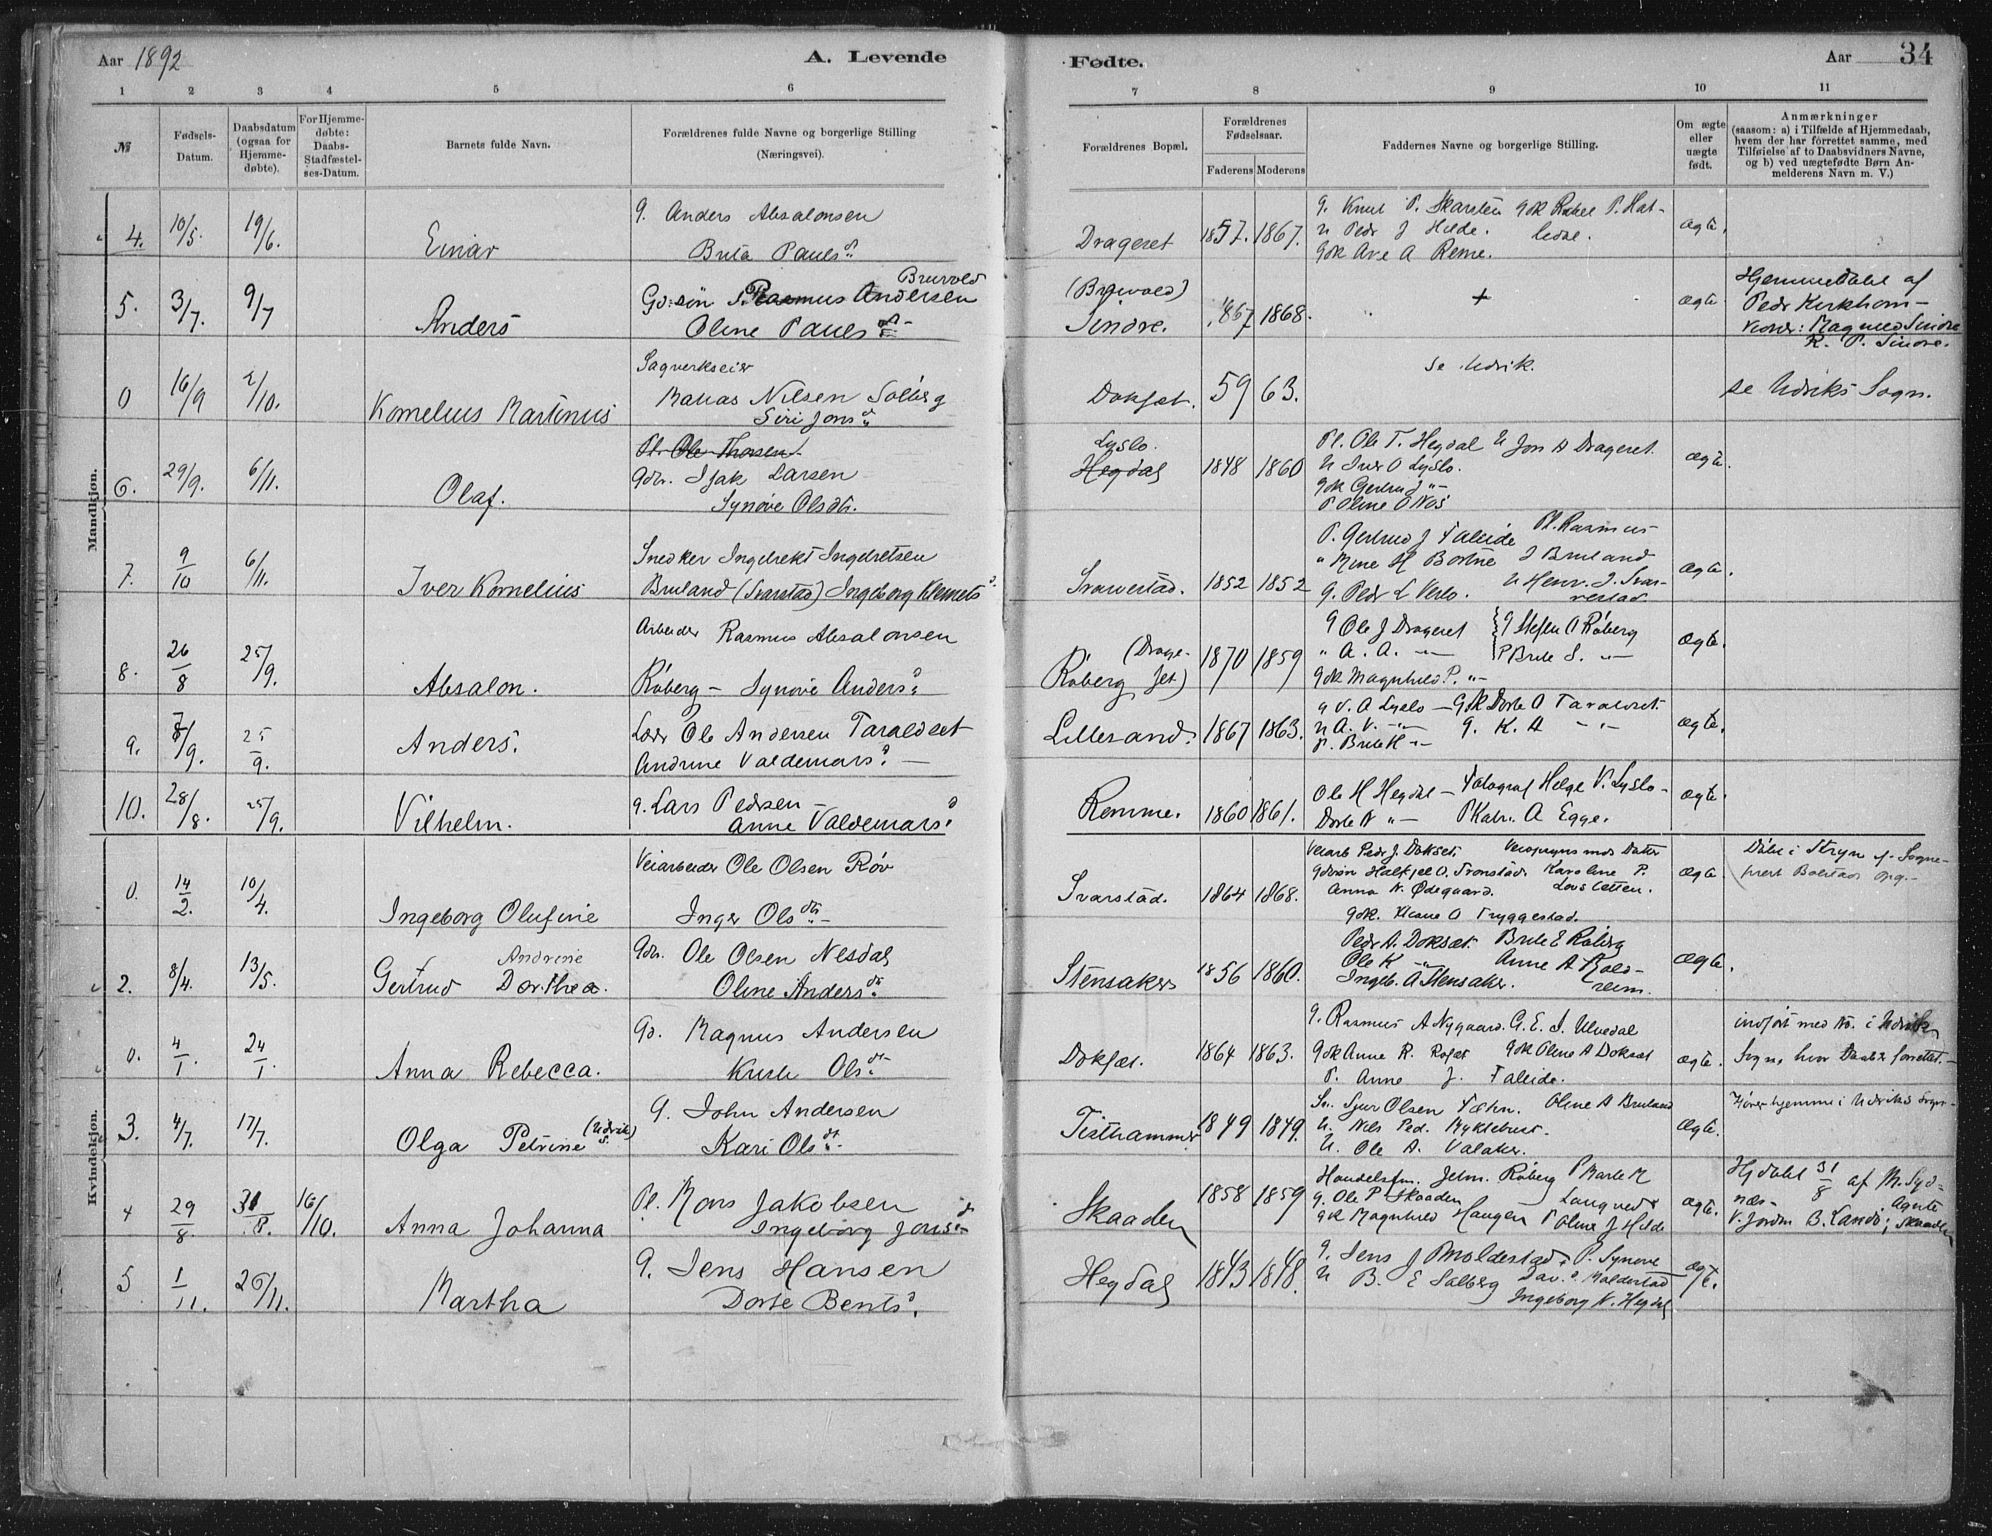 Aar 1892
A. Levende
Fødte.
Aar
34
1 2 3 4 5 6 7 8 9 10 11
№
Fødsels-
Datum.
Daabsdatum
(ogsaa for
Hjemme-
døbte).
For Hjemme-
døbte:
Daabs-
Stadfæstel-
ses-Datum.
Barnets fulde Navn.
Forældrenes fulde Navne og borgerlige Stilling
(Næringsvei).
Forældrenes Bopæl.
Forældrenes
Fødselsaar.
Faderens Moderens
Faddernes Navne og borgerlige Stilling.
Om ægte
eller
uægte
født.
Anmærkninger
(saasom: a) i Tilfælde af Hjemmedaab,
hvem der har forrettet samme, med
Tilføielse af to Daabsvidners Navne,
og b) ved uægtefødte Børn An-
melderens Navn m. V.)
Mandkjøn.
4. 10/5. 19/6. Einar
G. Anders Absalonsen
Brita Pauls d.
Drageret 1857. 1867.
G. Knut P. Skarsten Gdk Rakel P. Hat-
U Peder J Hilde. ledal.
Gdk Ave A Reme.
ægte.
5. 3/7. 9/7 Anders
Bruvold
Gd:søn Rasmus Andersen
Oline Pauls dt
(Bruvold)
Sindre. 1867 1868.
+
ægte.
Hjemmedøbt af
Peder Kirkhorn-
Vidner: Magnus Sindre
R. P. Sindre.
0 16/9 2/10. Kornelius Martinus
Sagverkseier
Matias Nilsen Solberg
Siri Jons d.
Dokset. 59 63.
Se Udvik.
se Udviks Sogn.
6. 29/9. 6/11. Olaf.
Pl. Ole Thorsen
Gdbr. Isak Larsen
Synøve Olsdtr.
Lyslo.
Hegdal 1848 1860
Pl. Ole T. Hegdal U Jon A Drageret.
U Iver O Lyslo.
Gdk Gertrud J "-
P Oline O Nos
ægte.
7. 9/10 6/11. Iver Kornelius
Snedker Ingebrekt Ingebretsen
Bruland (Svarstad) Ingeborg Klemets d.
Svarvestad. 1852 1852
P. Gertrud J Taleide Pl. Rasmus
" Mine H Bortne J Bruland
G. Peder L Verlo. U Henr. J. Svar-
vestad
ægte.
8. 26/8 25/9. Absalon.
Arbeider Rasmus Absalonsen
Røberg - Synøve Anders d.
(Drage-
Røberg set) 1870 1859
G Ole J Drageret G Steffen A Røberg
" A. A. "- P Brite S. "-
Gdk Magnhild P. "-
ægte.
9. 7/9. 25/9. Anders.
Lærer Ole Andersen Taraldset
Andrine Valdemars d. -
Lillesand. 1867 1863.
G V. A Lyslo - Gdk Dorte O Taraldset.
U A. V. "- G. K. A "-
P. Brite H "-
ægte.
10. 28/8. 25/9. Vilhelm.
G. Lars Pedersen -
Anne Valdemars d.
Remme. 1860 1861.
Ole H Hegdal - Fotograf Helge V. Lyslo -
Dorte N "- P Katr. A Egge.
ægte.
Kvindekjøn.
0. 14/2. 10/4. Ingeborg Olufine
Veiarbeider Ole Olsen Røv
Inger Ols dtr -
Svarstad. 1864 1868.
Veiarb Peder J. Dokset. Veiopsyns mds Datter
Gdsøn Halfjeld O. Tronstad. Karoline P.
Anna N. Ødegaard. Lovisetten.
Gdk. O Tryggestad.
ægte.
Døbt i Stryn af Sogne-
prest
2. 8/4. 13/5. Gertrud Dorthea.
Andrine
Gdbr. Ole Olsen Nesdal
Oline Anders dtr.
Stensaker 1856 1860.
Peder A. Dokset. Brite E Røberg
Ole K "- Anne A Rold-
Ingeb. A Stensaker. reim.
ægte.
0. 4/1. 24/1. Anna Rebecca.
Gd. Magnus Andersen
Ols dtr.
Dokset. 1864 1863.
G. Rasmus A Nygaard. G. E. S. Ulvedal
Gdk Anne R. Roset Gdk Oline A Dokset
P. Anne J. Taleide.
ægte.
indført med No. i Udvik
Sogn, hvor Daaben forrettet. -
3. 4/7. 17/7. Olga Petrine (Udvik S.)
G. John Andersen
Kari Ols dtr -
Tisthammer 1849 1849.
Sn. Sjur Olsen Fæhn. Oline A Bruland
U. Nils Ped. Myklebust.
U. Ole A. Valaker.
ægte.
Hører hjemme i Udviks Sogn.
4 29/8. 31/8. 16/10. Anna Johanna
Pl. Mons Jakobsen
Ingeborg Jons d.
Skaaden 1858 1859
Handelsfm. Jetm. Røberg P Marte M
G. Ole P. Skaaden Langvedt
Gdk Magnhild Haugen P Oline J Hilde
ægte.
Hjdøbt 31/8 af M. Syd-
næs - Agnte
V. Jordm B. Sande, Skaaden
5 1/11. 26/11. Martha
G. Jens Hansen
Dorte Bents d.
Hegdal 1843 1848.
G. Jens J Moldestad, P. Synøve
U B. E Solberg Dav. d. Moldestad
Ingeborg N. Hegdal
ægte.